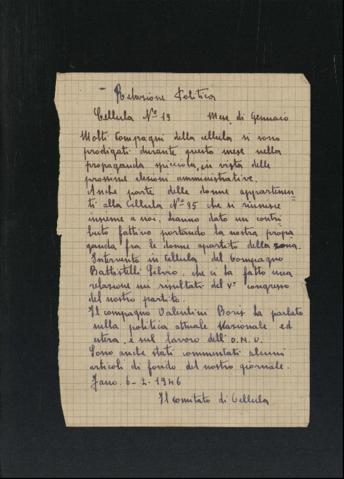 Relazione Politica
Cellula Nº 19 Mese di Gennaio
Molti compagni della cellula si sono
prodigati durante questo mese nella
propaganda spicciola, in vista delle
prossime elezioni amministrative.
Anche parte delle donne appartenen
ti alla cellula Nº 95 che si riunisce
insieme a noi, hanno dato un contri
buto fattivo portando la nostra propa
ganda fra le donne apartito della zona.
Intervento in cellula del Compagno
Battistelli Silvio, che ci ha fatto una
relazione sui risultati del Vº congresso
del nostro partito.
Il compagno Valentini Boris ha parlato
sulla politica attuale Nazionale ed
estera, e sul lavoro dell'O.N.U.
Sono anche stati commentati alcuni
articoli di fondo del nostro giornale.
Fano. 6-2-1946
Il comitato di Cellula